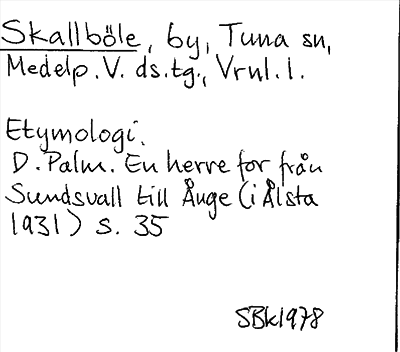 Skallböle, by, Tuna sn,
Medelp. V. ds.tg., Vrnl. l.
Etymologi.
D. Palm. En herre for från
Sundsvall till Ånge (i Ålsta
1931) s. 35
SBk1978